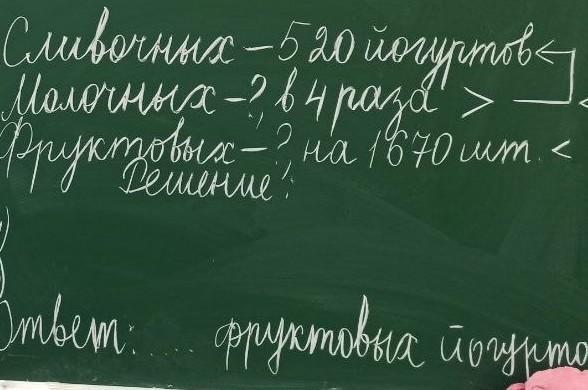 Сливочных – 520 йогуртов <
Молочных – ?, в 4 раза >
Фруктовых – ?, на 1670 шт. <
Решение:
Ответ: .... фруктовых йогурто